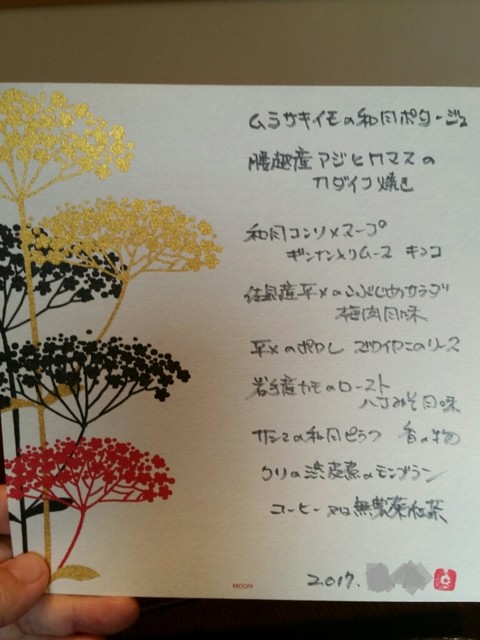 ムラサキイモの和風ポタージュ
腰越産アジとカマスの
カダイフ焼き
和風コンソメスープ
ギンナンとリムース キノコ
佐島産平メのこぶじめサラダ
梅肉風味
平メのポワレ ズワイガニのソース
岩手産カモのロースト
八丁みそ風味
サンマの和風ピラフ 香の物
クリの渋皮煮のモンブラン
コーヒー 又は無農薬紅茶
MIDORI 2017.